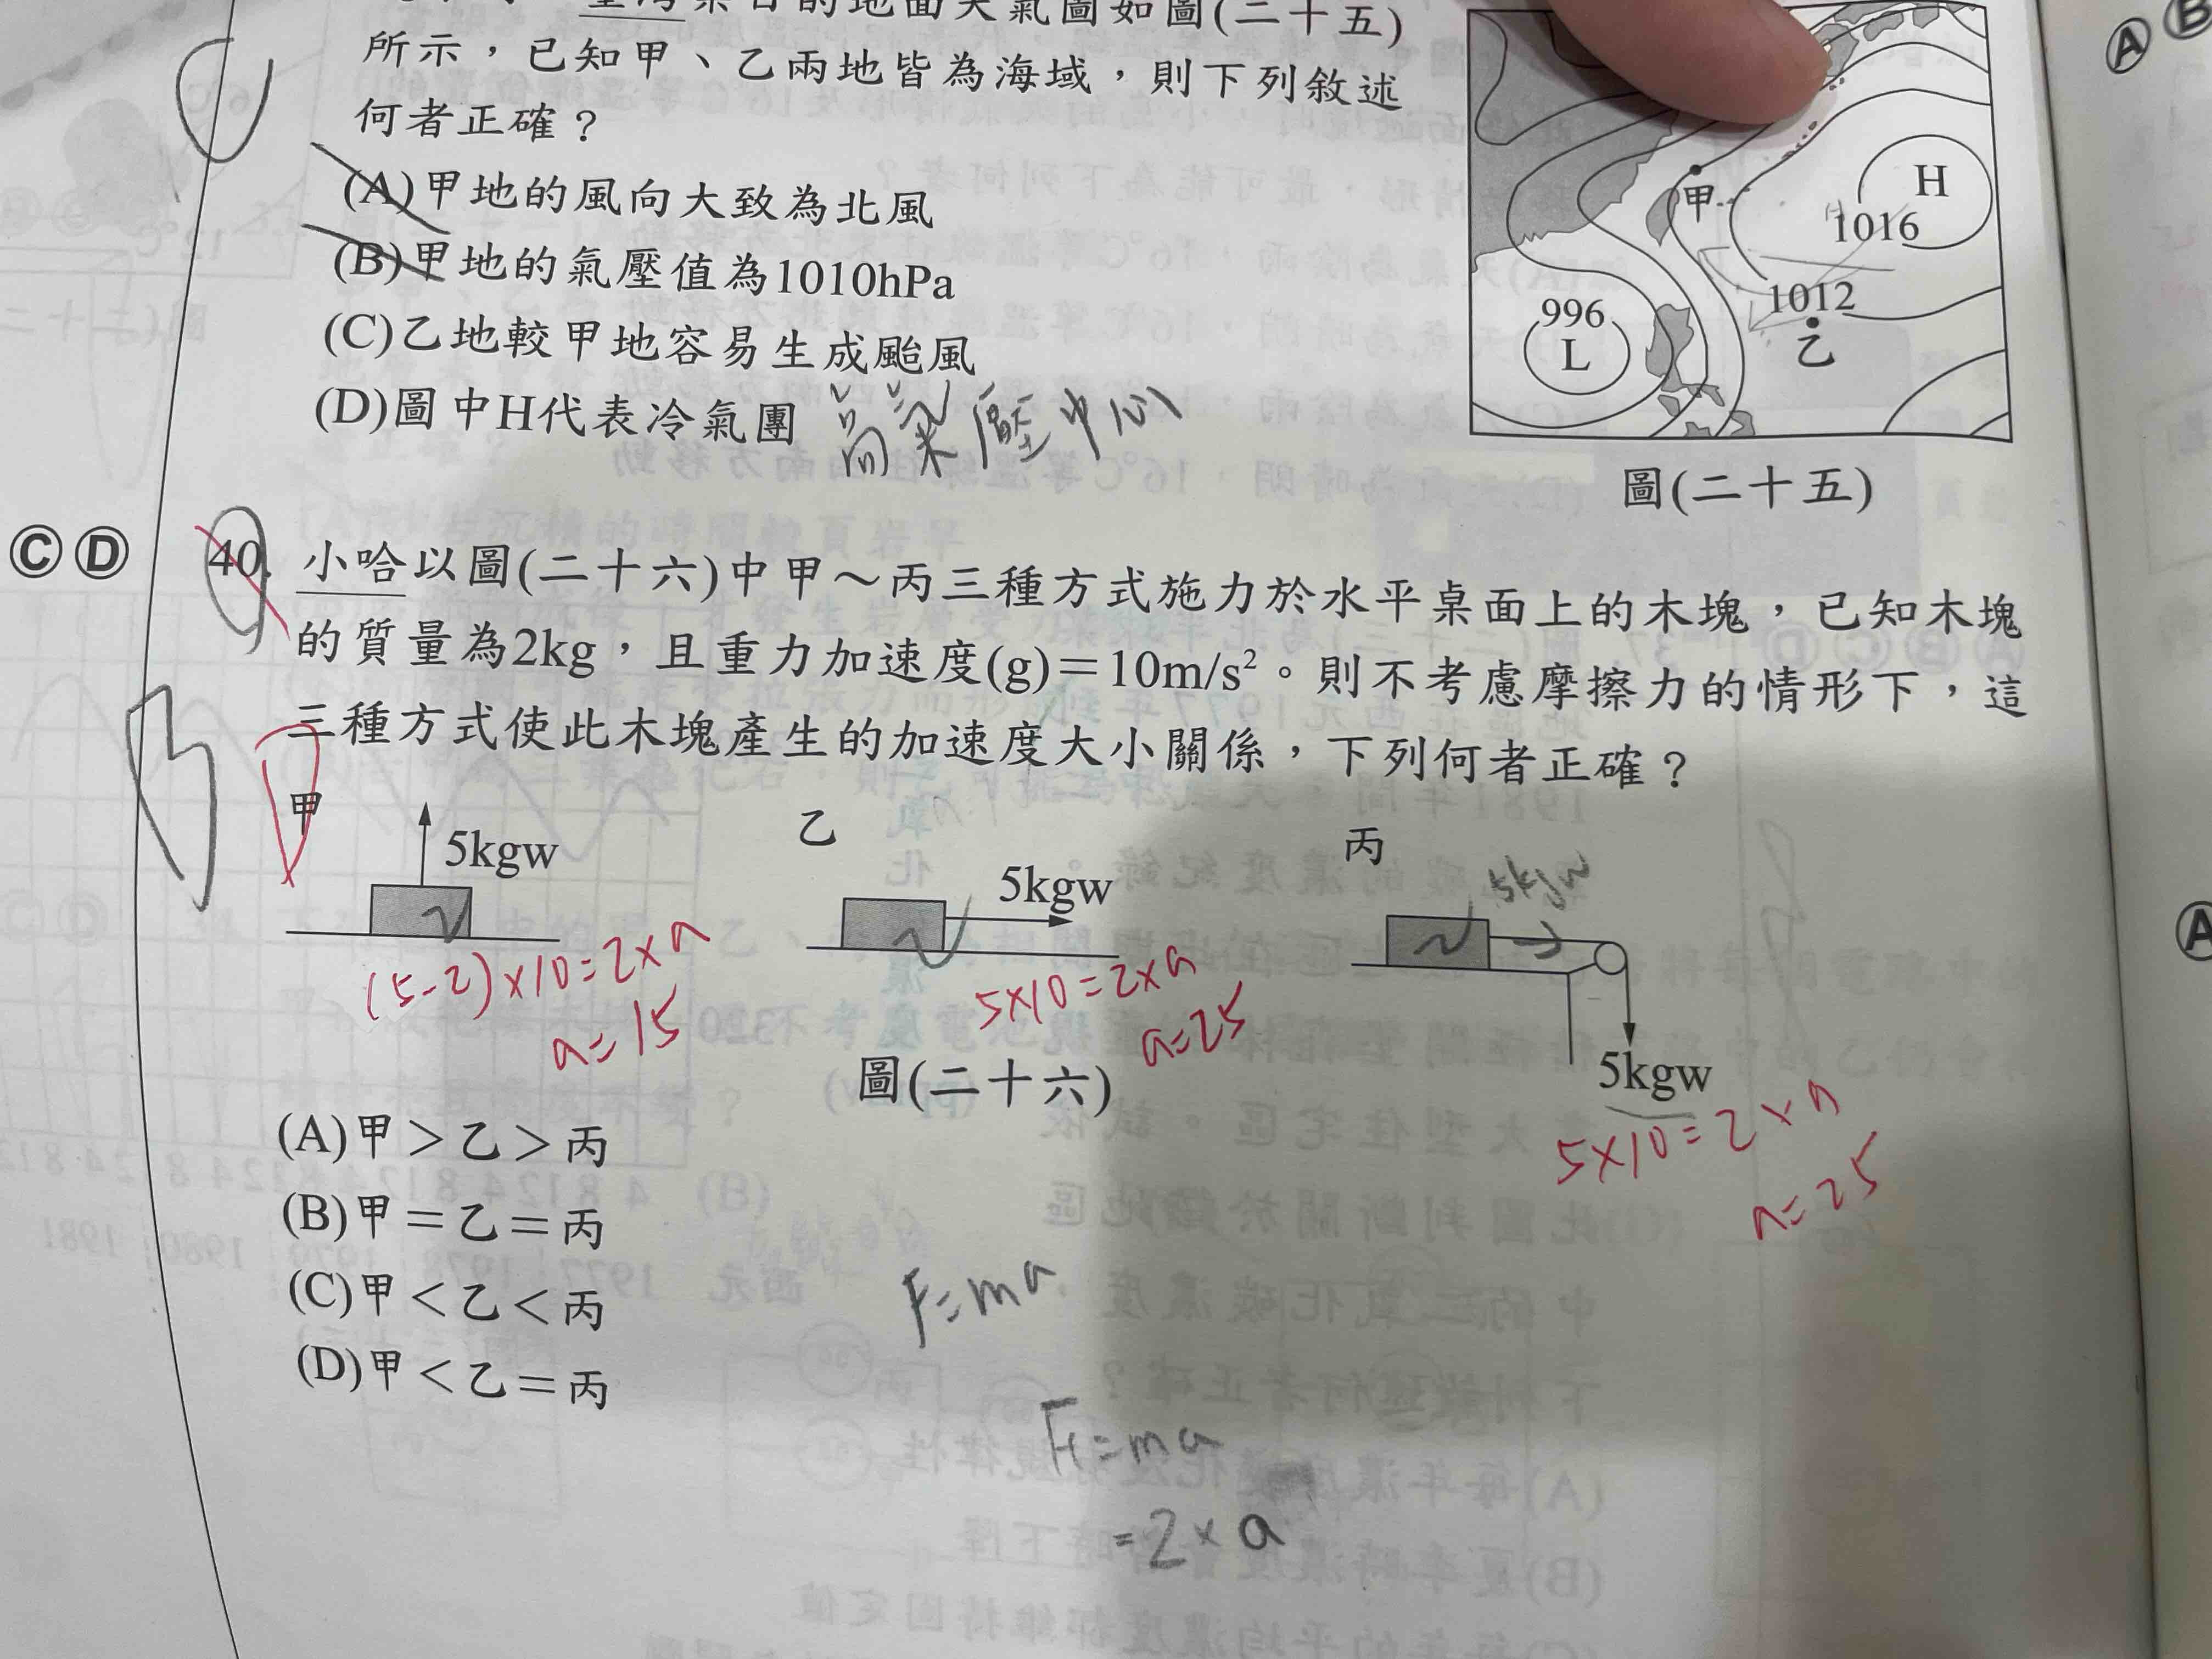 臺灣某日的地面天氣圖如圖(二十五)
所示，已知甲、乙兩地皆為海域，則下列敘述
何者正確？
(A)甲地的風向大致為北風
(B)甲地的氣壓值為1010hPa
(C)乙地較甲地容易生成颱風
(D)圖中H代表冷氣團
高氣壓中心
H
1016
甲
1012
乙
996
L
圖(二十五)
Ⓒ Ⓓ
40. 小哈以圖(二十六)中甲～丙三種方式施力於水平桌面上的木塊，已知木塊
的質量為2kg，且重力加速度(g)＝10m/s²。則不考慮摩擦力的情形下，這
三種方式使此木塊產生的加速度大小關係，下列何者正確？
甲
5kgw
(5-2)×10=2×a
a=15
乙
5kgw
5×10=2×a
a=25
丙
5kgw
5kgw
5×10=2×a
a=25
圖(二十六)
(A)甲＞乙＞丙
(B)甲＝乙＝丙
(C)甲＜乙＜丙
(D)甲＜乙＝丙
F=ma
F=ma
=2×a
Ⓐ Ⓑ
Ⓐ